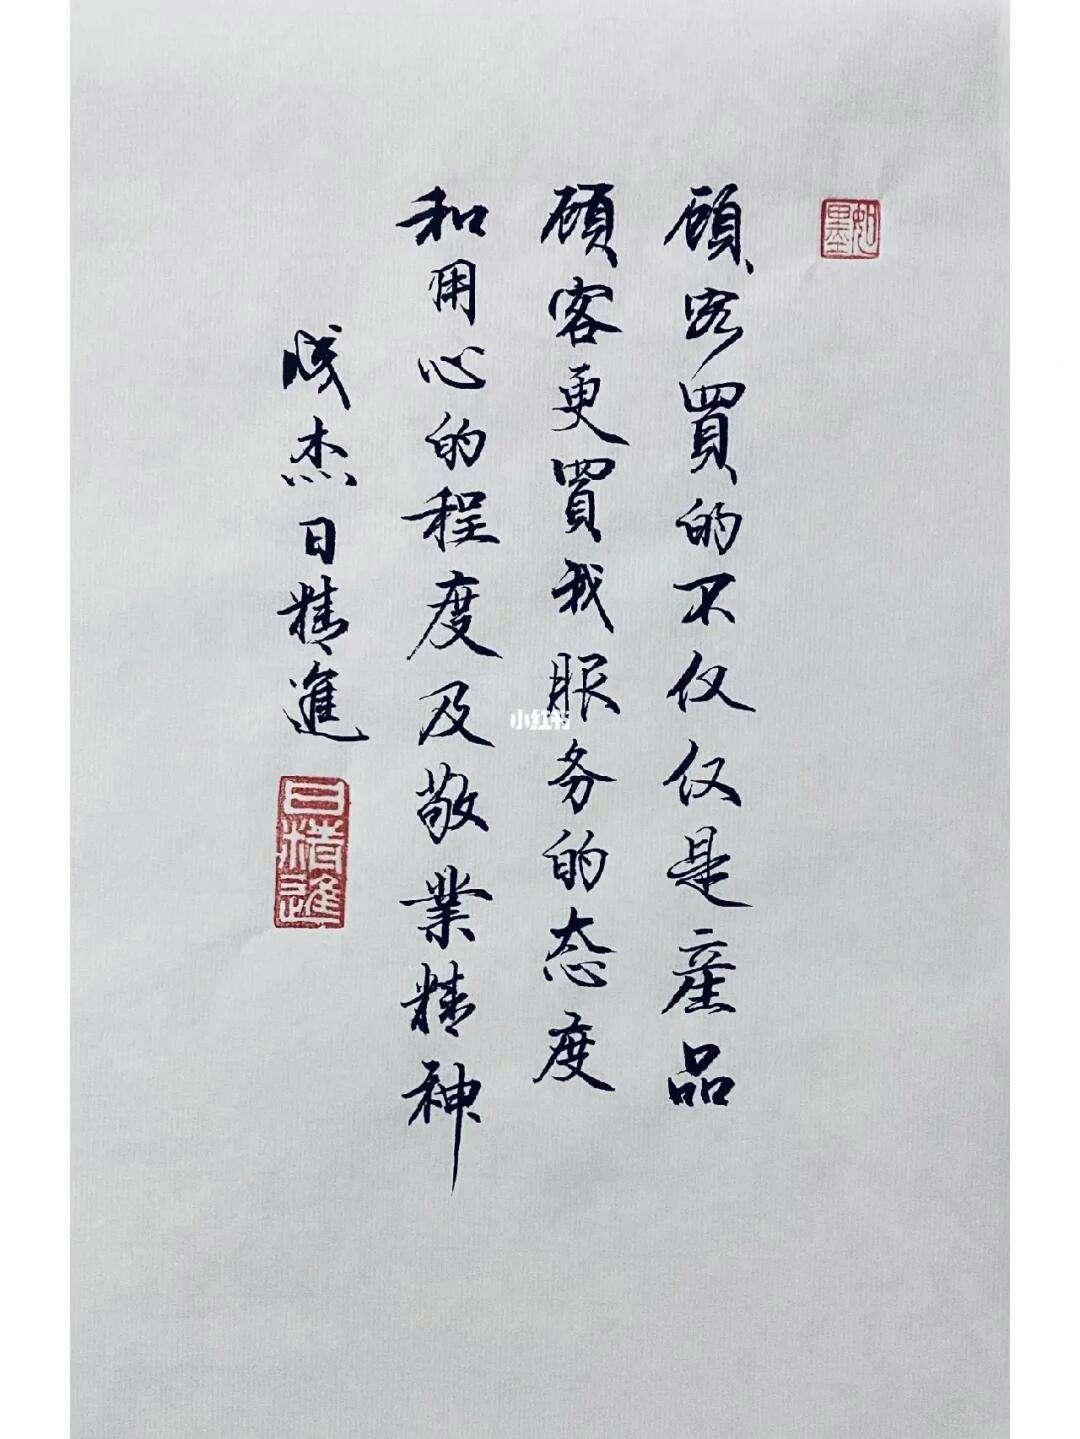 如墨
顾客買的不仅仅是產品
顾客更買我服务的态度
和用心的程度及敬業精神
成杰日精進
日精進
小红书